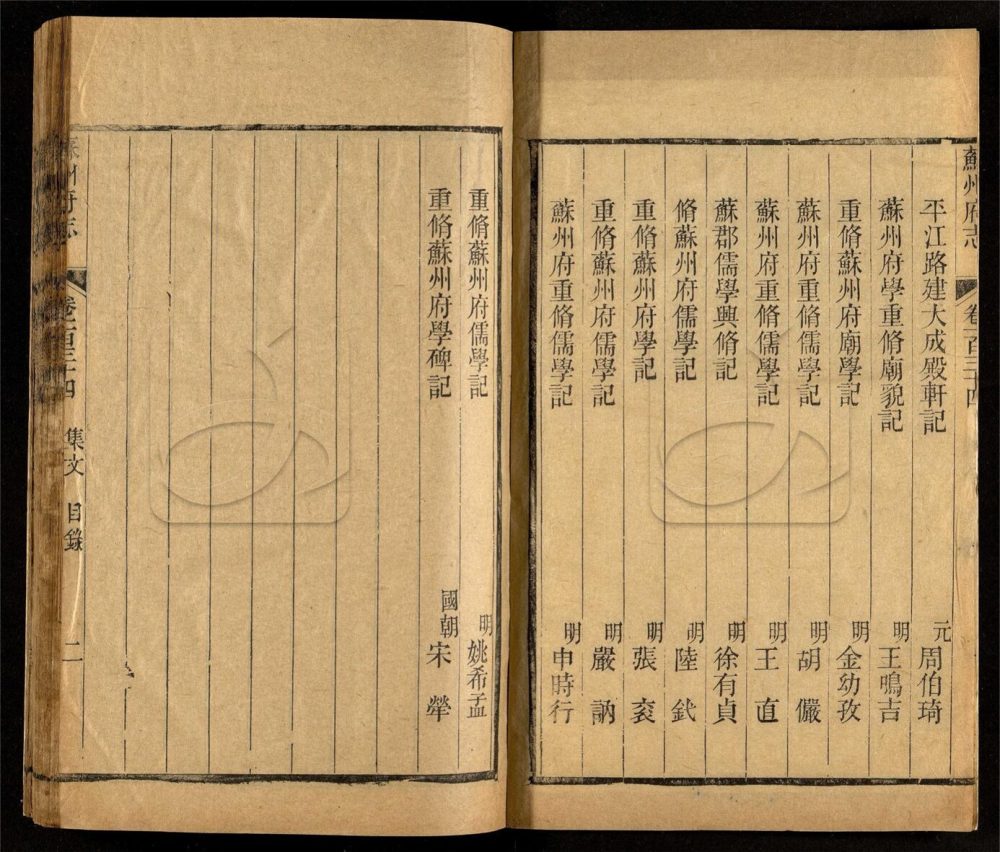 蘇州府志 卷一百
平江路建大成殿軒記 元 周伯琦
蘇州府學重脩廟貌記 明 王鳴吉
重脩蘇州府廟學記 明 金幼孜
蘇州府重脩儒學記 明 胡儼
蘇州府重脩儒學記 明 王直
蘇郡儒學興脩記 明 徐有貞
脩蘇州府儒學記 明 陸釴
重脩蘇州府學記 明 張袞
重脩蘇州府儒學記 明 嚴訥
蘇州府重脩儒學記 明 申時行
重脩蘇州府儒學記 明 姚希孟
重脩蘇州府學碑記 國朝 宋犖
州府志 集文 目錄 二